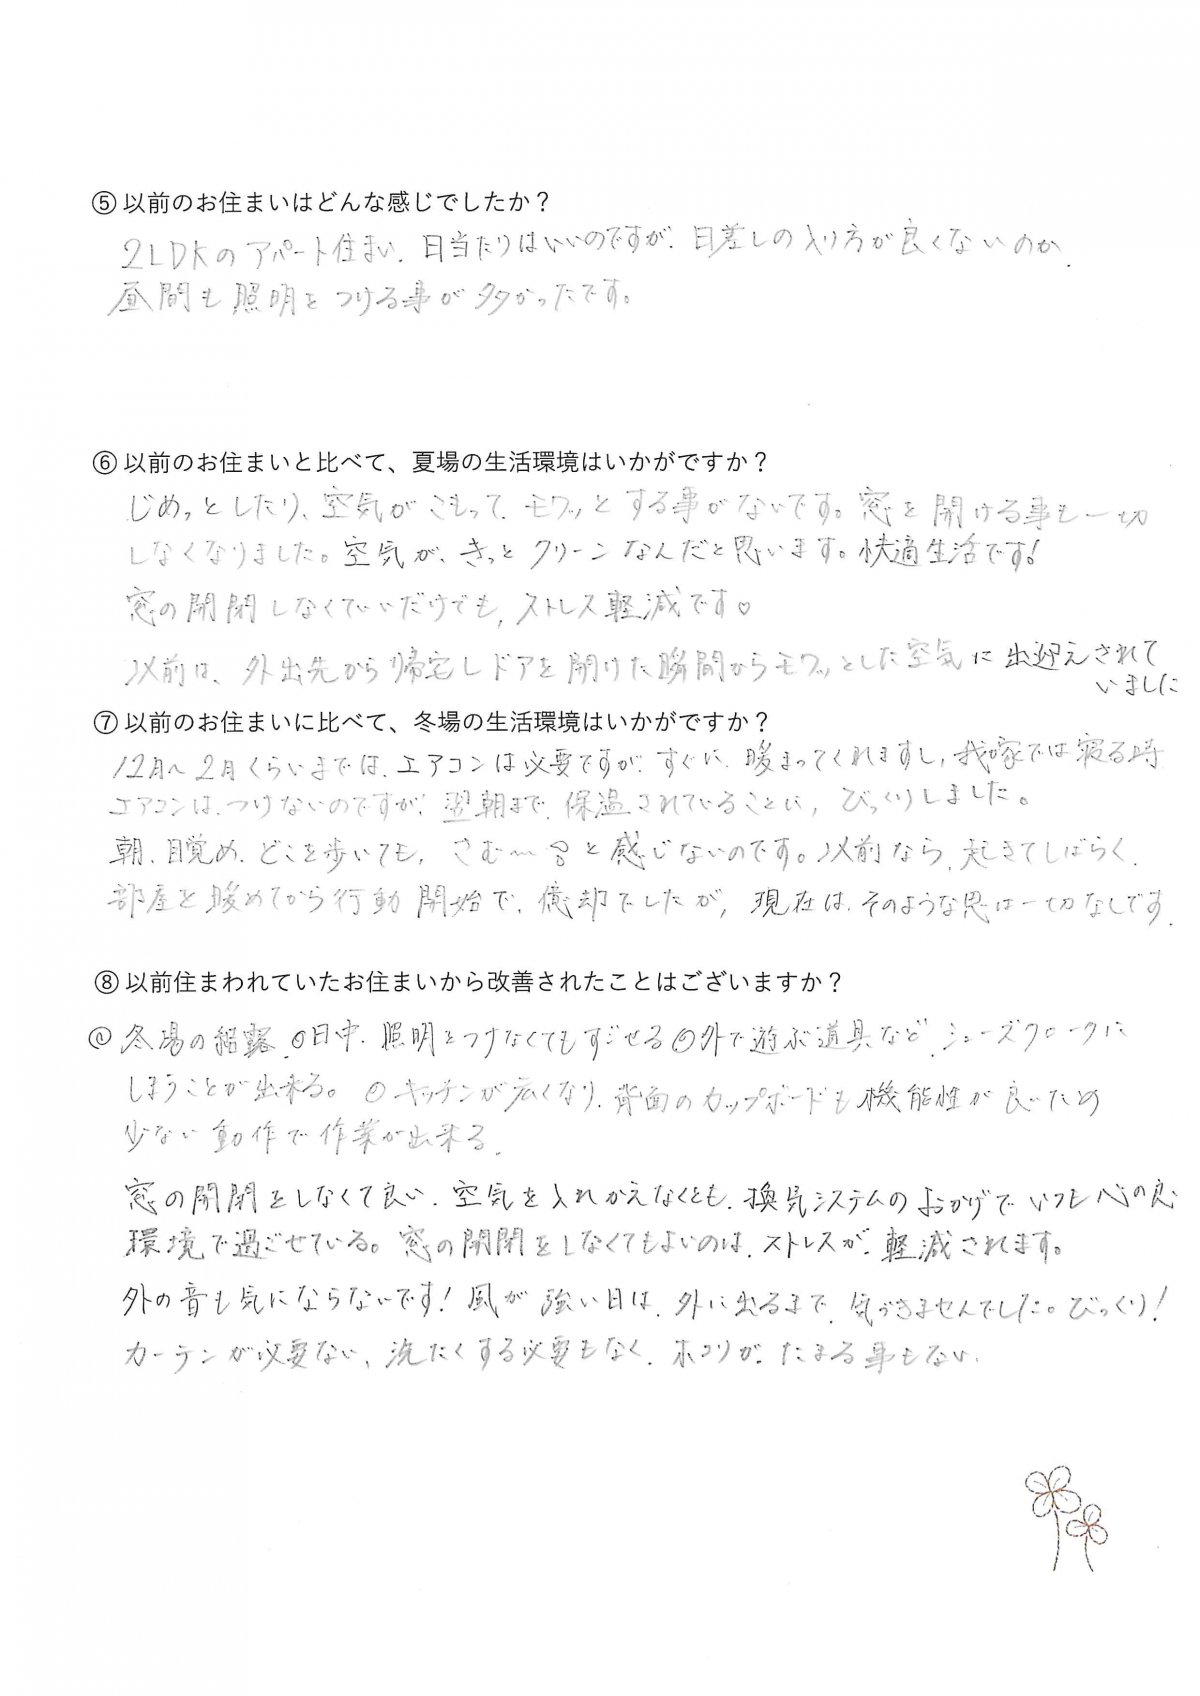 ⑤以前のお住まいはどんな感じでしたか？
2LDKのアパート住まい、日当たりはいいのですが、日差しの入り方が良くないのか、
昼間も照明をつける事が多かったです。
⑥以前のお住まいと比べて、夏場の生活環境はいかがですか？
じめっとしたり、空気がこもって、モワッとする事がないです。窓を開ける事も一切
しなくなりました。空気が、きっとクリーンなんだと思います。快適生活です!
窓の開閉しなくていいだけでも、ストレス軽減です♡
以前は、外出先から帰宅しドアを開けた瞬間からモワッとした空気に出迎えされて
いました
⑦以前のお住まいに比べて、冬場の生活環境はいかがですか？
12月～2月くらいまでは、エアコンは必要ですが、すぐに、暖まってくれますし、我が家では寝る時
エアコンは、つけないのですが、翌朝まで、保温されていることに、びっくりしました。
朝、目覚め、どこを歩いても、さむ〜と感じないのです。以前なら、起きてしばらく、
部屋を暖めてから行動開始で、億却でしたが、現在は、そのような思は一切なしです。
⑧以前住まわれていたお住まいから改善されたことはございますか？
◎冬場の結露、○日中、照明をつけなくてもすごせる○外で遊ぶ道具など、シューズクロークに
しまうことが出来る。○キッチンが広くなり、背面のカップボードも機能性が良いため
少ない動作で作業が出来る。
窓の開閉をしなくて良い、空気を入れかえなくとも、換気システムのおかげでいつも心の良
環境で過ごせている。窓の開閉をしなくてもよいのは、ストレスが、軽減されます。
外の音も気にならないです!風が強い日は、外に出るまで、気づきませんでした。びっくり!
カーテンが必要ない、洗たくする必要もなく、ホコリが、たまる事もない、